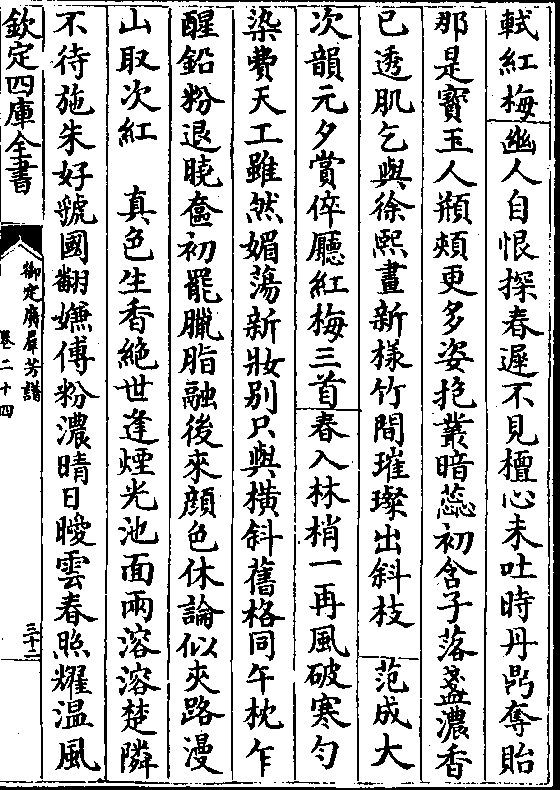 軾紅梅幽人自恨探春遲不見檀心未吐時丹鼎奪胎
那是寳玉人頩頰更多姿抱叢暗蕊初含子落盞濃香
已透肌乞與徐熙畫新様竹間璀璨出斜枝　范成大
次韻元夕賞倅廳紅梅三首春入林梢一再風破寒勻
染費天工雖然媚蕩新妝别只與横斜舊格同午枕乍
醒鉛粉退曉奩初罷臙脂融後來顔色休論似夾路漫
山取次紅　真色生香絶世逢煙光池面兩溶溶楚隣
不待施朱好虢國翻嫌傅粉濃晴日曖雲春照耀温風
欽定四庫全書
御定廣羣芳譜
卷二十四
三十二